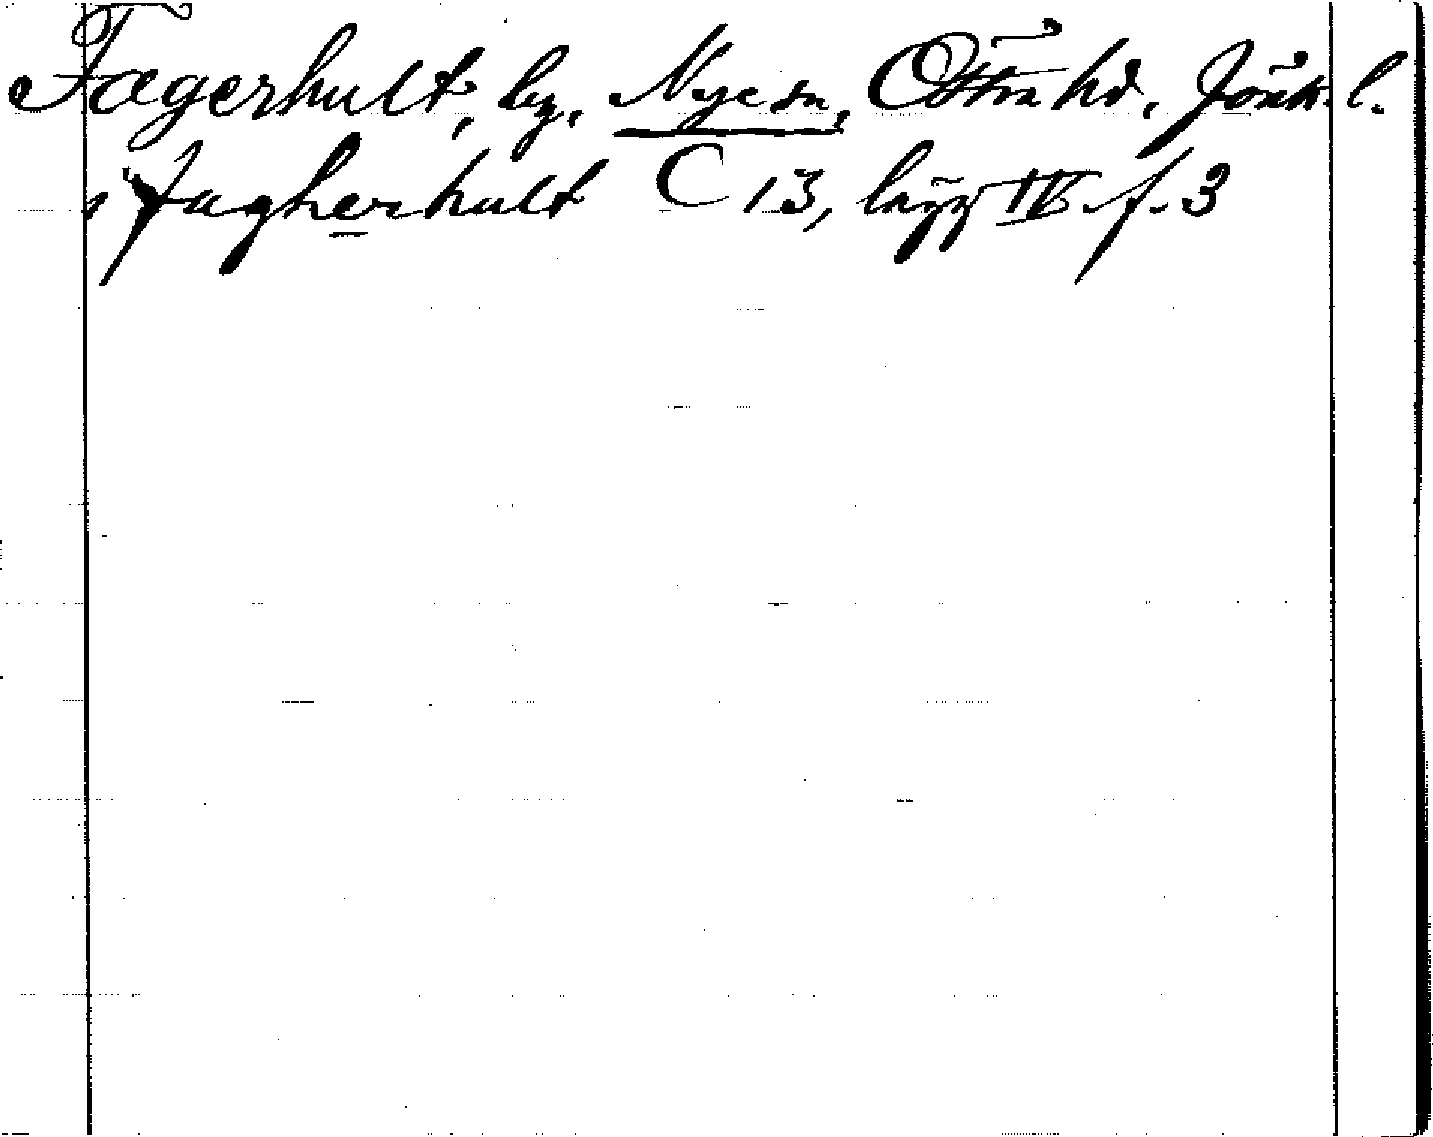 Fagerhult, by, Nye sn, Östra hd. Jönk. l.
i Fagherhult C 13, lägg IV f. 3